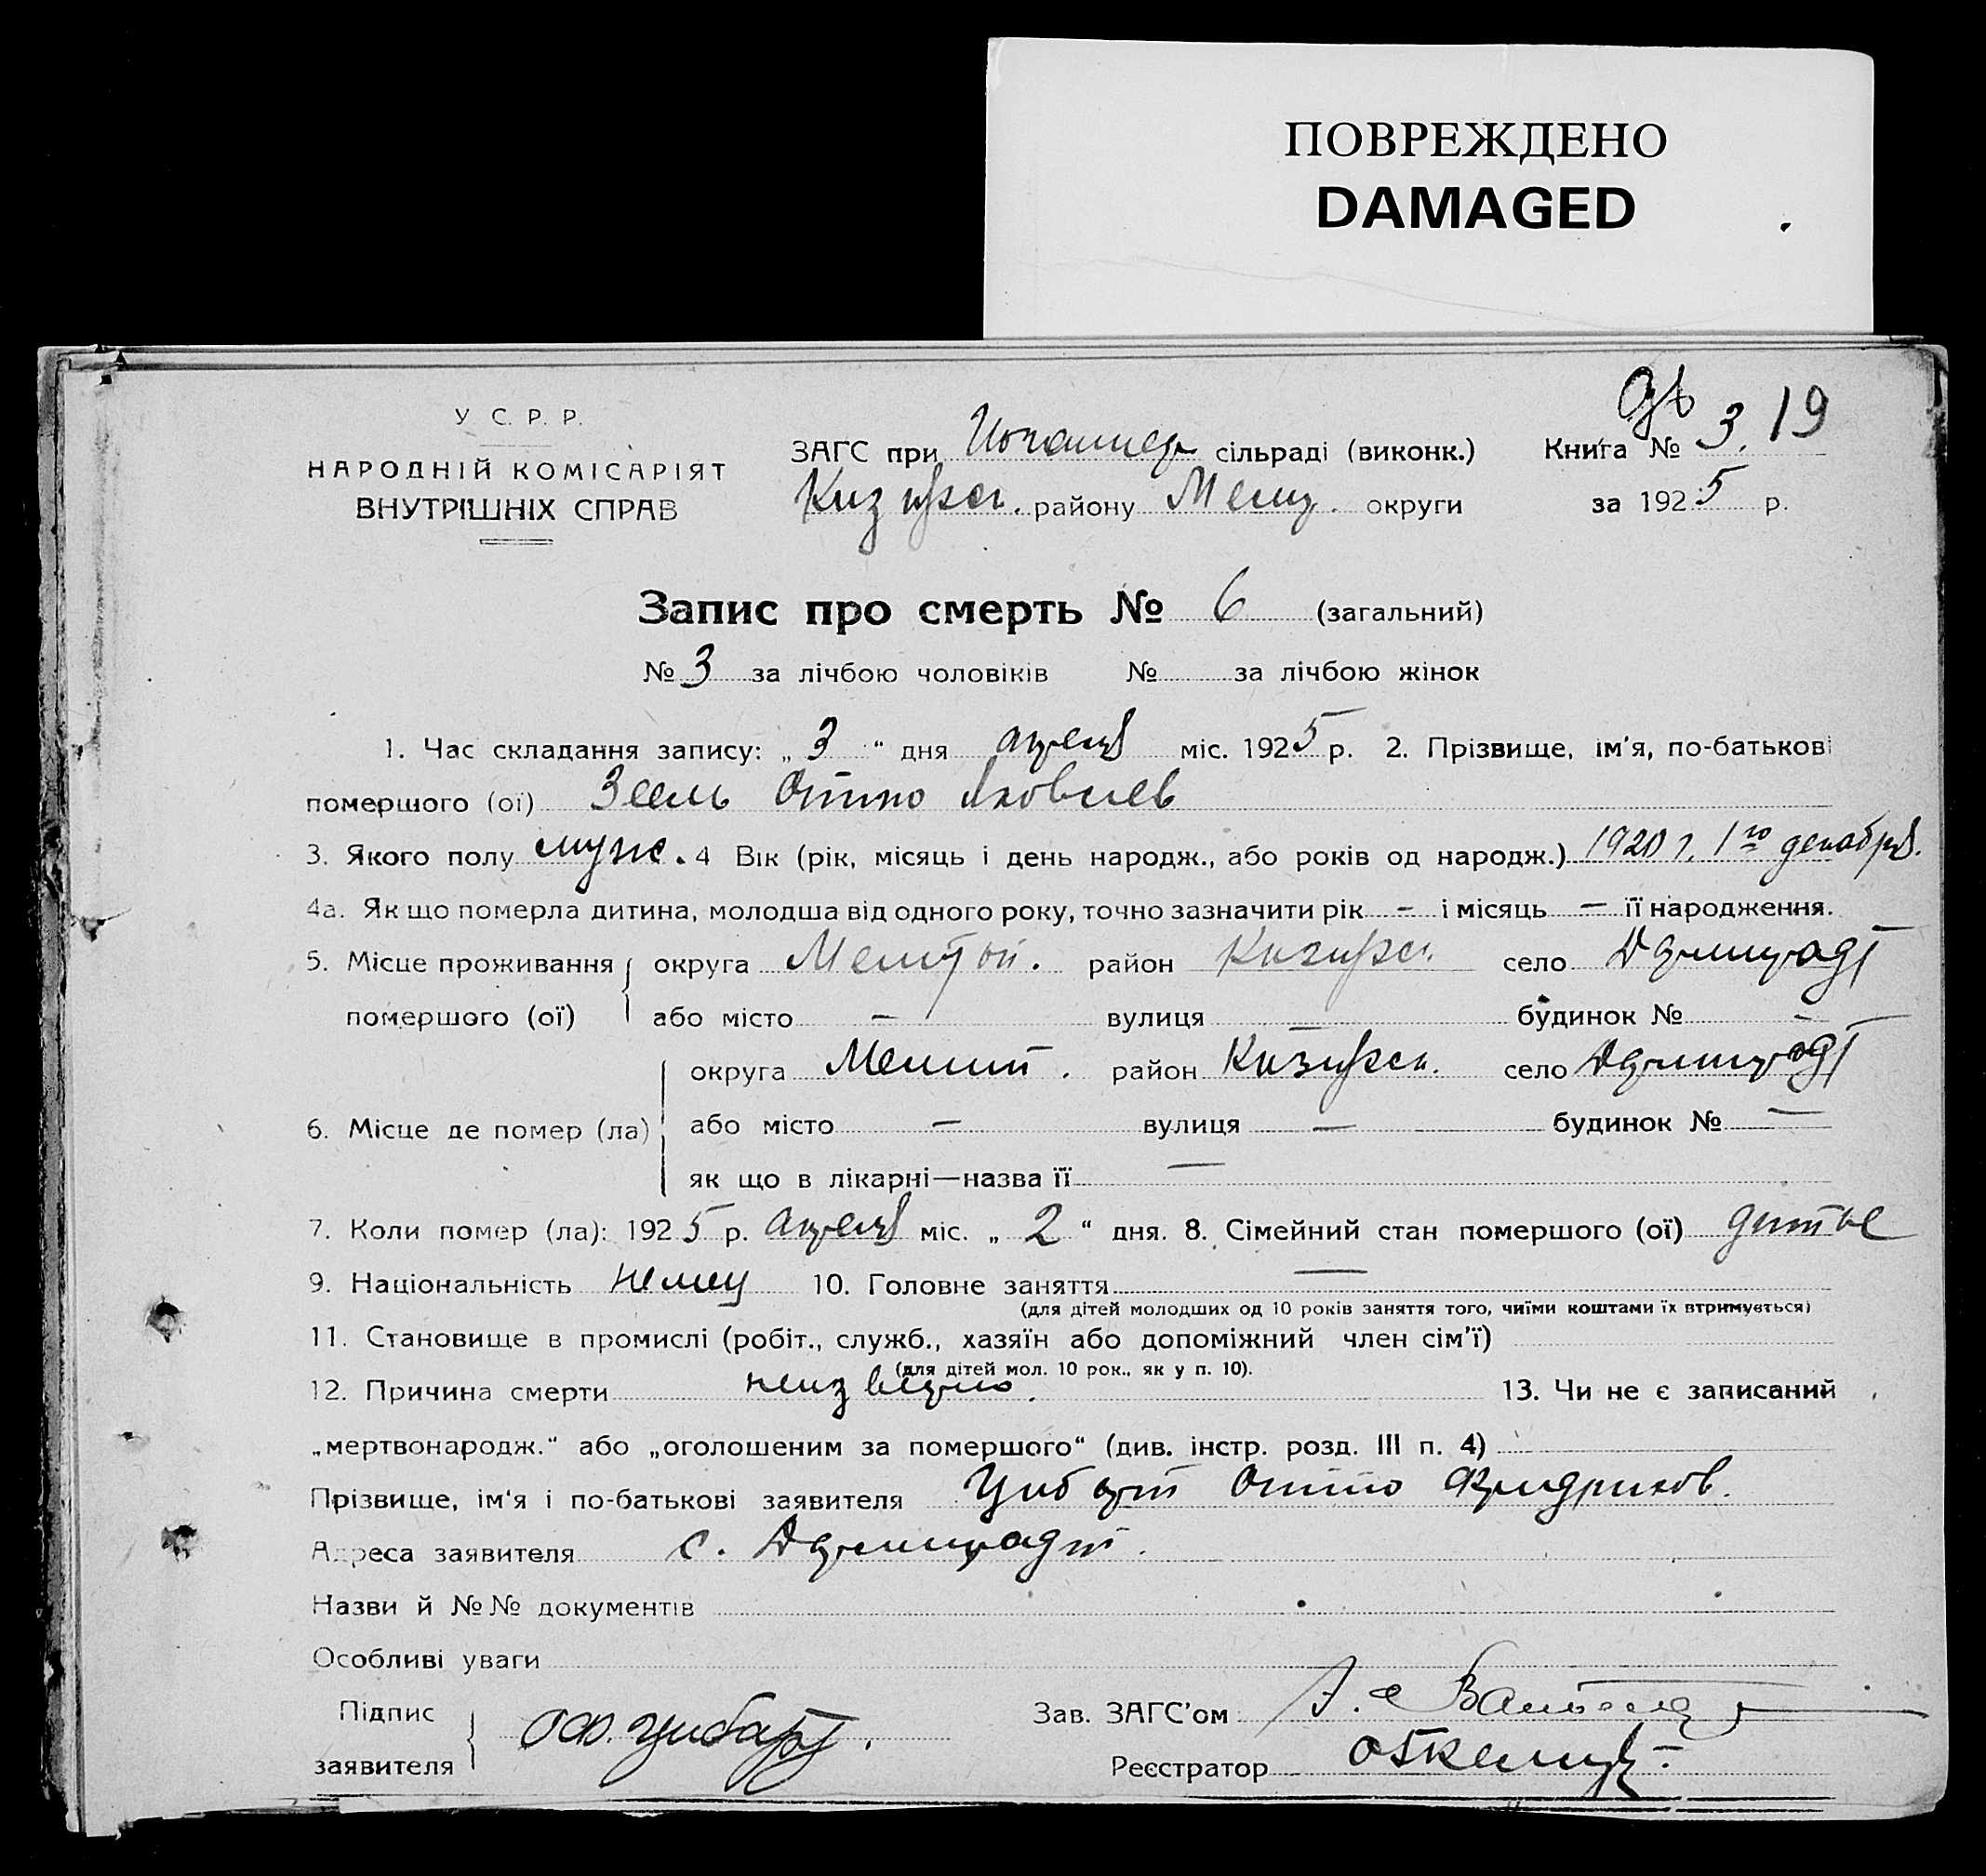 ПОВРЕЖДЕНО
DAMAGED
У С. Р. Р.
НАРОДНІЙ КОМІСАРІЯТ
ВНУТРІШНІХ СПРАВ
ЗАГС при сільраді (виконк.)
району округи
Книга № 3. 19
за 1925 р.
Запис про смерть № 6 (загальний)
№ 3 за лічбою чоловіків № за лічбою жінок
1. Час складання запису: „ 3 “ дня апреля міс. 1925 р. 2. Прізвище, ім'я, по-батькові
помершого (ої) Зеель Отто Яковлев
3. Якого полу муж. 4 Вік (рік, місяць і день народж., або років од народж.) 1920 г. 1го декабря.
4а. Як що померла дитина, молодша від одного року, точно зазначити рік – і місяць – її народження.
5. Місце проживання округа район село
помершого (ої) або місто – вулиця – будинок № –
округа район село
6. Місце де помер (ла) або місто – вулиця – будинок № –
як що в лікарні—назва її –
7. Коли помер (ла): 1925 р. апреля міс. „ 2 “ дня. 8. Сімейний стан помершого (ої)
9. Національність немец 10. Головне заняття –
(для дітей молодших од 10 років заняття того, чиїми коштами їх втримується)
11. Становище в промислі (робіт., служб., хазяїн або допоміжний член сім'ї)
(для дітей мол. 10 рок., як у п. 10).
12. Причина смерти неизвестно. 13. Чи не є записаний
„мертвонародж.“ або „оголошеним за помершого“ (див. інстр. розд. III п. 4)
Прізвище, ім'я і по-батькові заявителя Цибарт Отто Фридрихов.
Адреса заявителя с.
Назви й №№ документів
Особливі уваги
Підпис
заявителя Цибарт.
Зав. ЗАГС'ом
Реєстратор